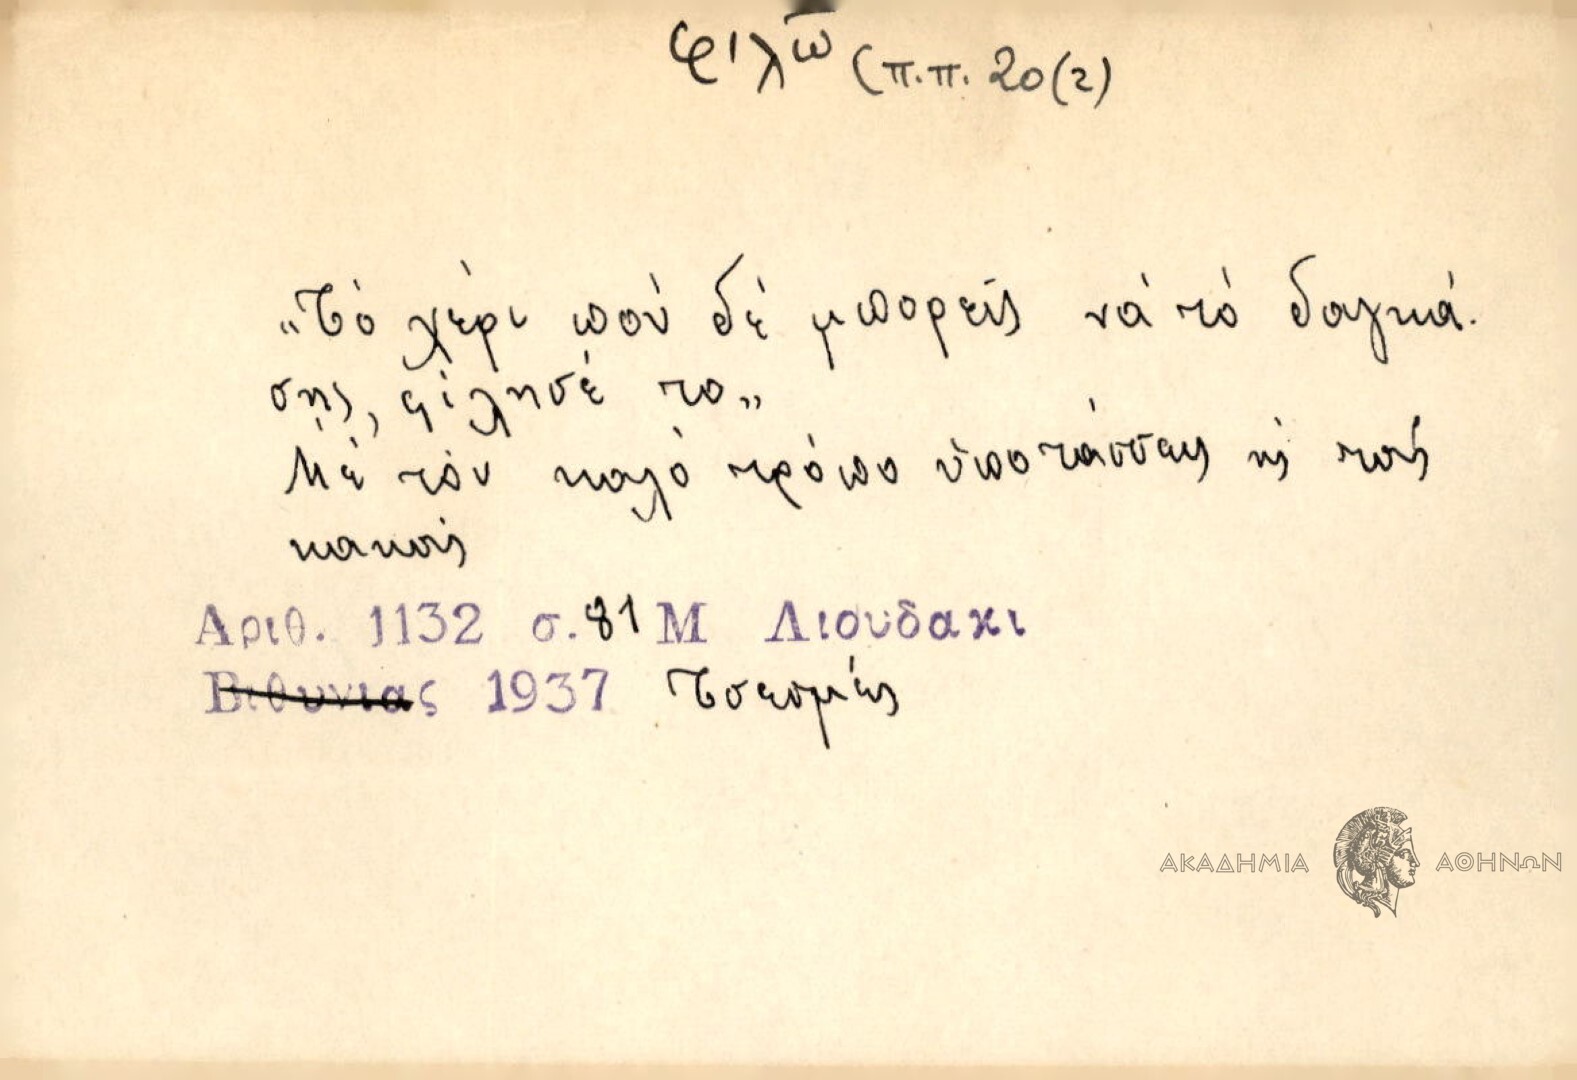 φιλῶ (π.π. 20(2)
„Τὸ χέρι ποὺ δὲ μπορεῖς νὰ τὸ δαγκά-
σῃς, φίλησέ το„
Μὲ τὸν καλὸ τρόπο ὑποτάσσεις κὶ τοὺς
κακούς
Αριθ. 1132 σ. 81 Μ Λιουδακι
Βιθυνιας 1937 Τσεσμές
ΑΚΑΔΗΜΙΑ ΑΘΗΝΩΝ